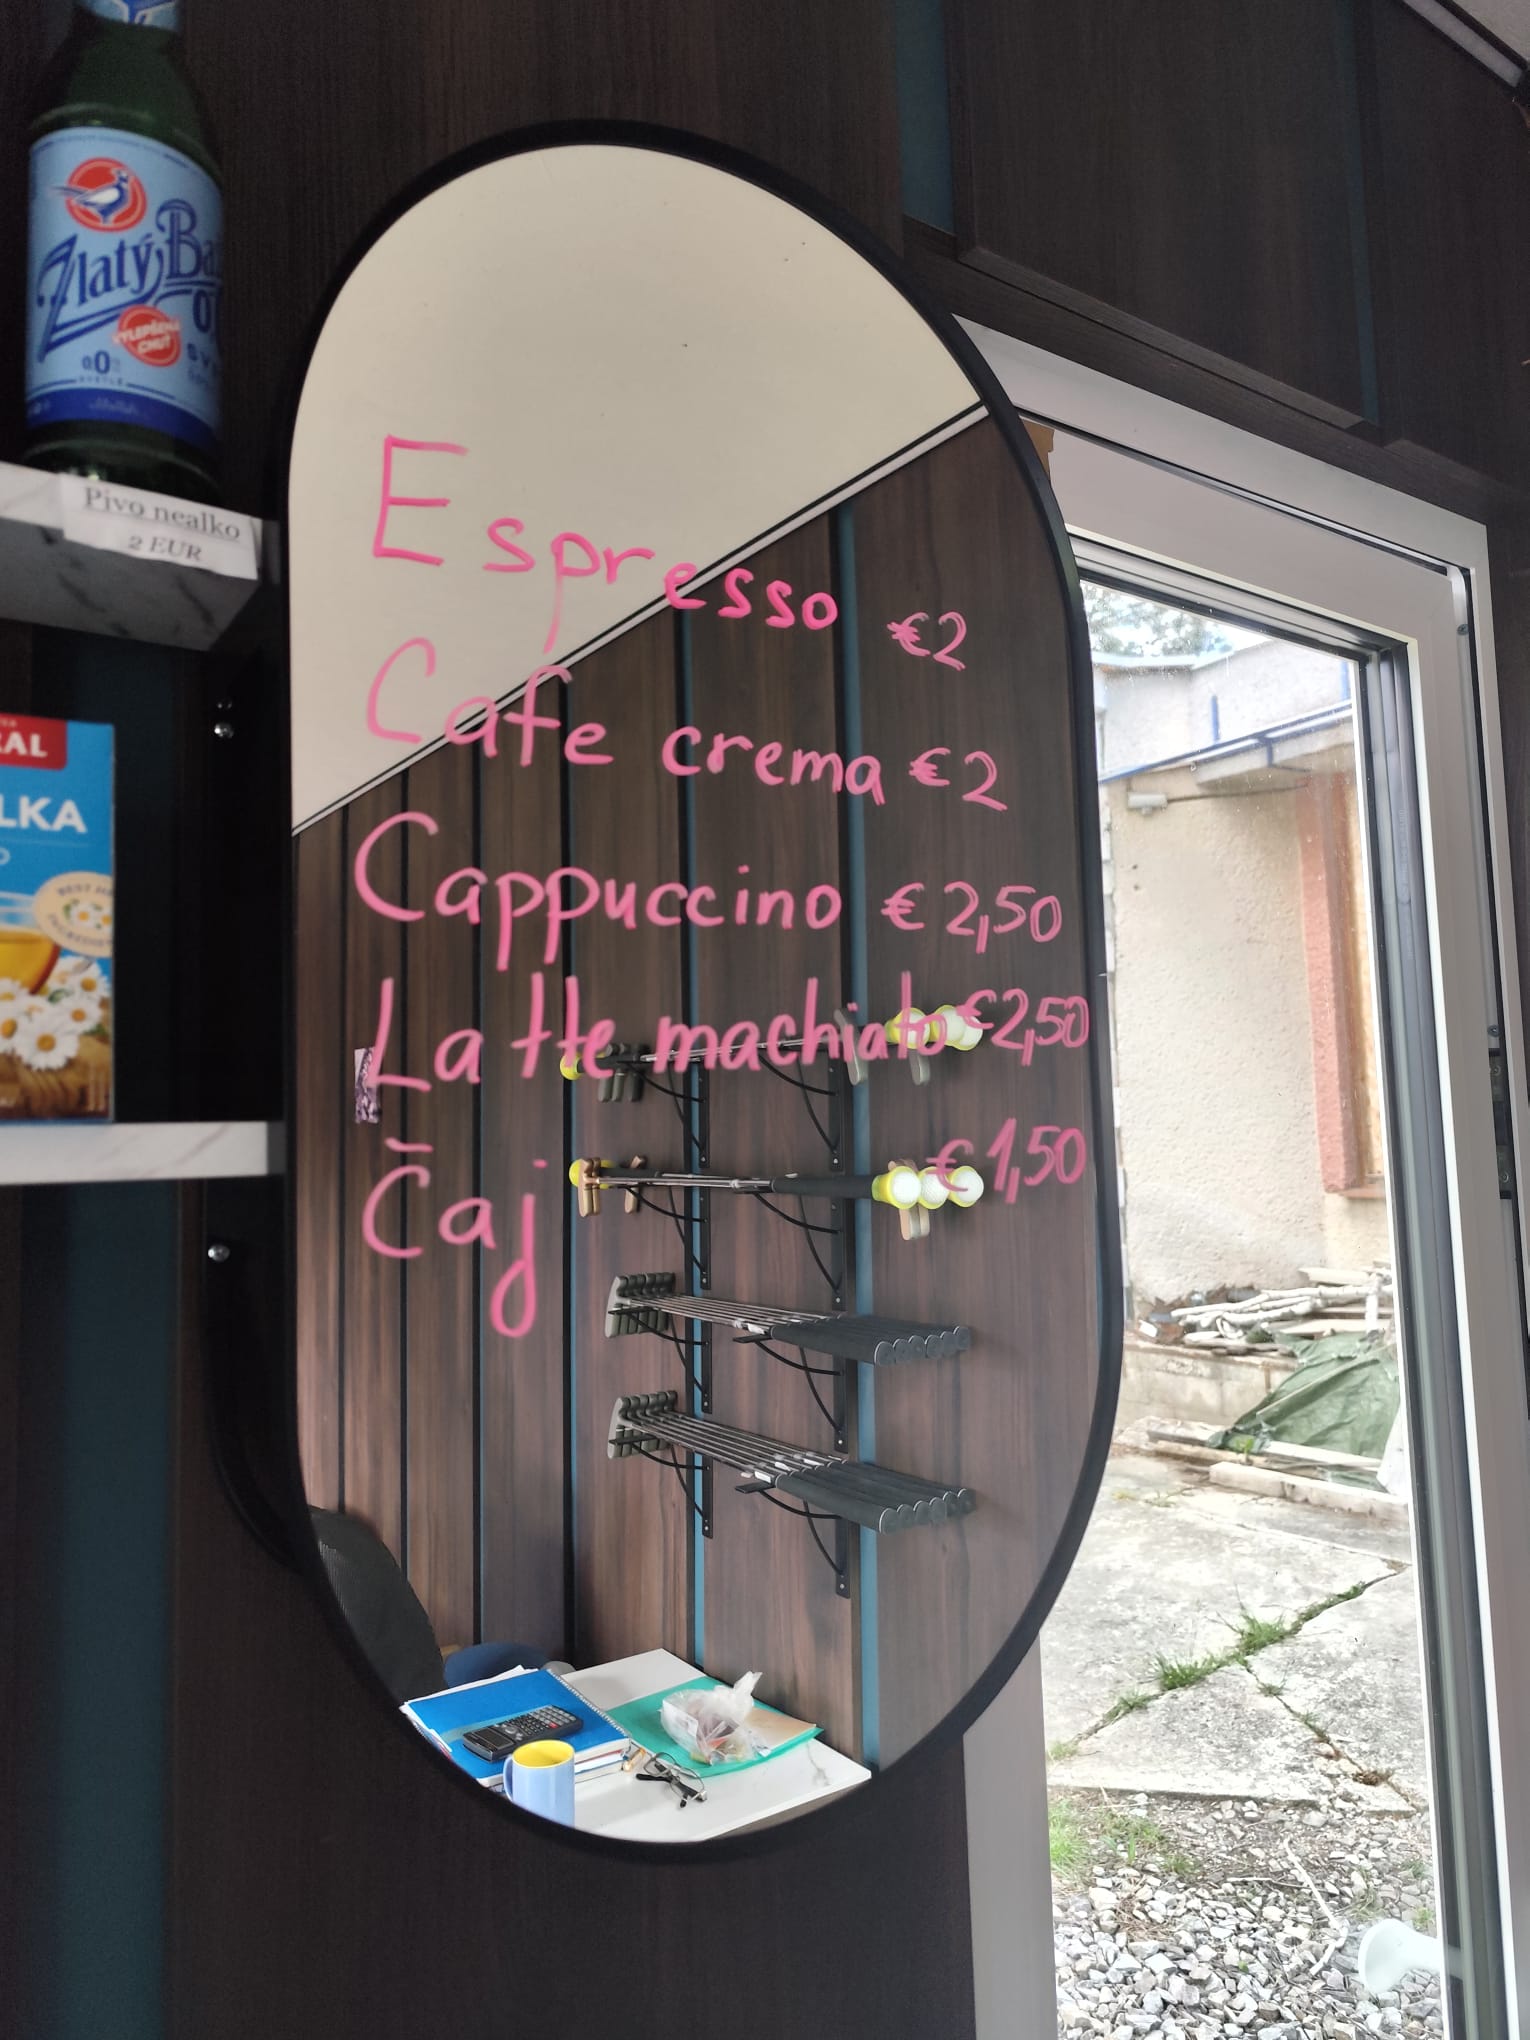 Zlatý Ba
VYLEPŠENÁ
CHUŤ
0,0%
SVETLÉ
Pivo nealko
2 EUR
RAL
LKA
BEST
Espresso €2
Cafe crema €2
Cappuccino €2,50
Latte machiato €2,50
Čaj €1,50